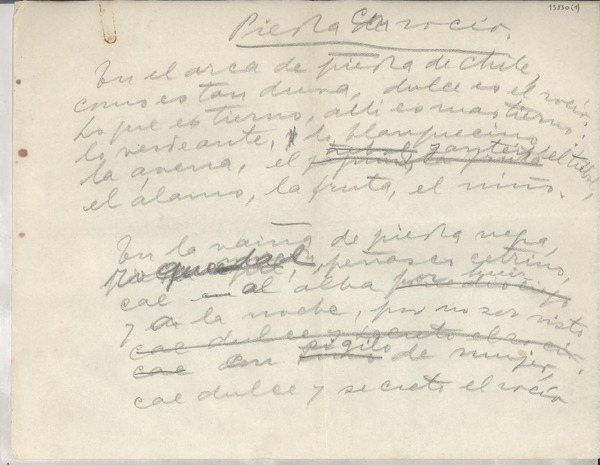 13330(1)
Piedra con rocío.
En el arca de piedra de Chile,
como es tan dura, dulce es el rocío.
Lo que es tierno, allí es mas tierno:
lo verdeante, lo blanquecino
la avena, el del trébol,
el álamo, la fruta, el niño.
En la vaina de piedra negra,
roquedal, peñascos cetrino,
cae al alba
y a la noche, por no ser visto
cae dulce y secreto el rocío.
cae con sigilo de mujer,
cae dulce y secreto el rocío